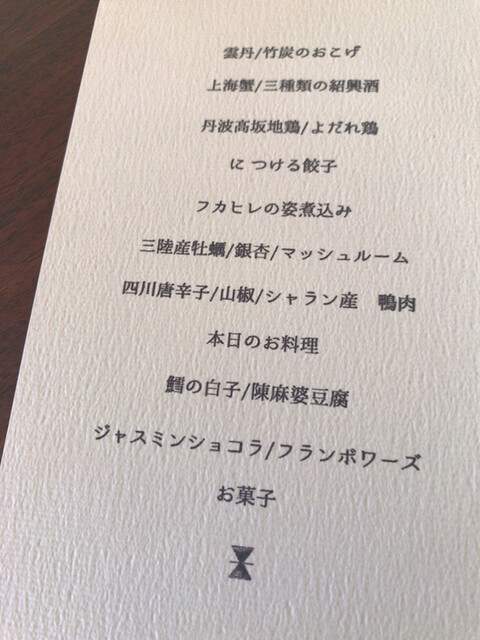 雲丹/竹炭のおこげ
上海蟹/三種類の紹興酒
丹波高坂地鶏/よだれ鶏
に つける餃子
フカヒレの姿煮込み
三陸産牡蠣/銀杏/マッシュルーム
四川唐辛子/山椒/シャラン産　鴨肉
本日のお料理
鱈の白子/陳麻婆豆腐
ジャスミンショコラ/フランポワーズ
お菓子